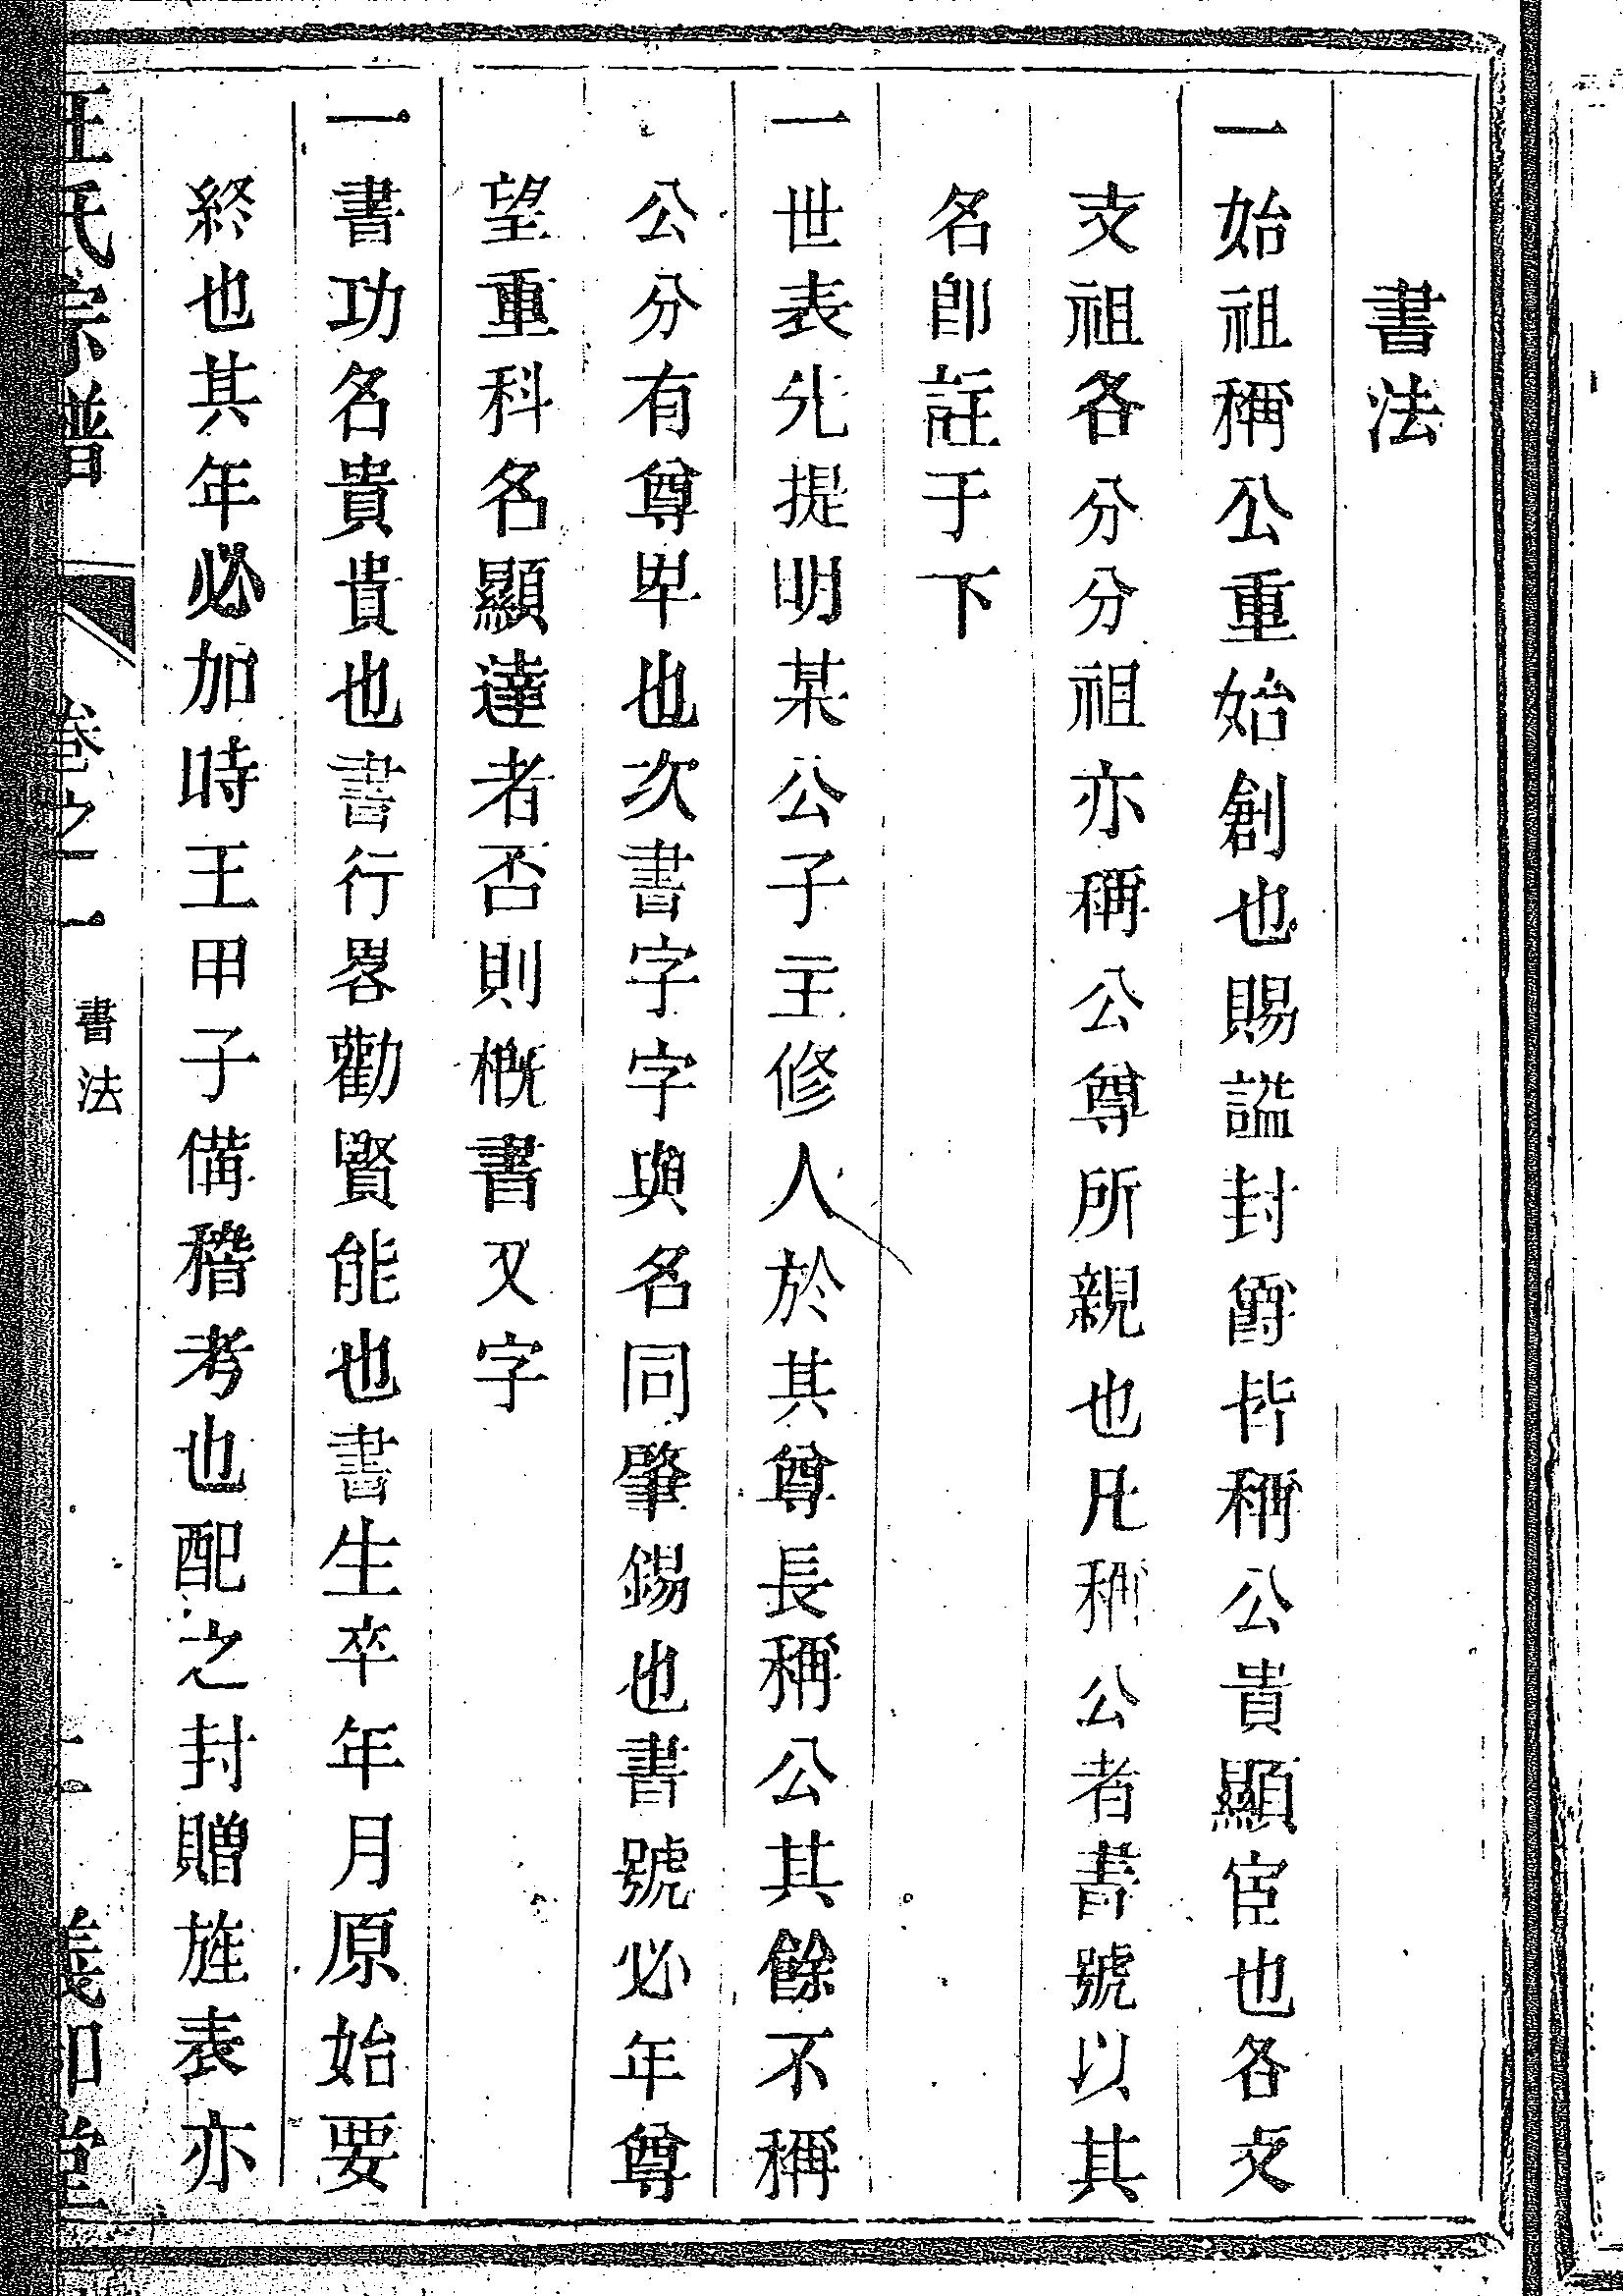 書法
一始祖稱公重始創也賜謚封爵皆稱公貴顯宦也各支
支祖各分分祖亦稱公尊所親也凡稱公者書號以其
名卽註于下
一世表先提明某公子主修人於其尊長稱公其餘不稱
公分有尊卑也次書字字與名同肇錫也書號必年尊
望重科名顯達者否則概書又字
一書功名貴貴也書行畧勸賢能也書生卒年月原始要
終也其年必加時王甲子備稽考也配之封贈旌表亦
王氏宗譜
卷之一
書法
義和堂